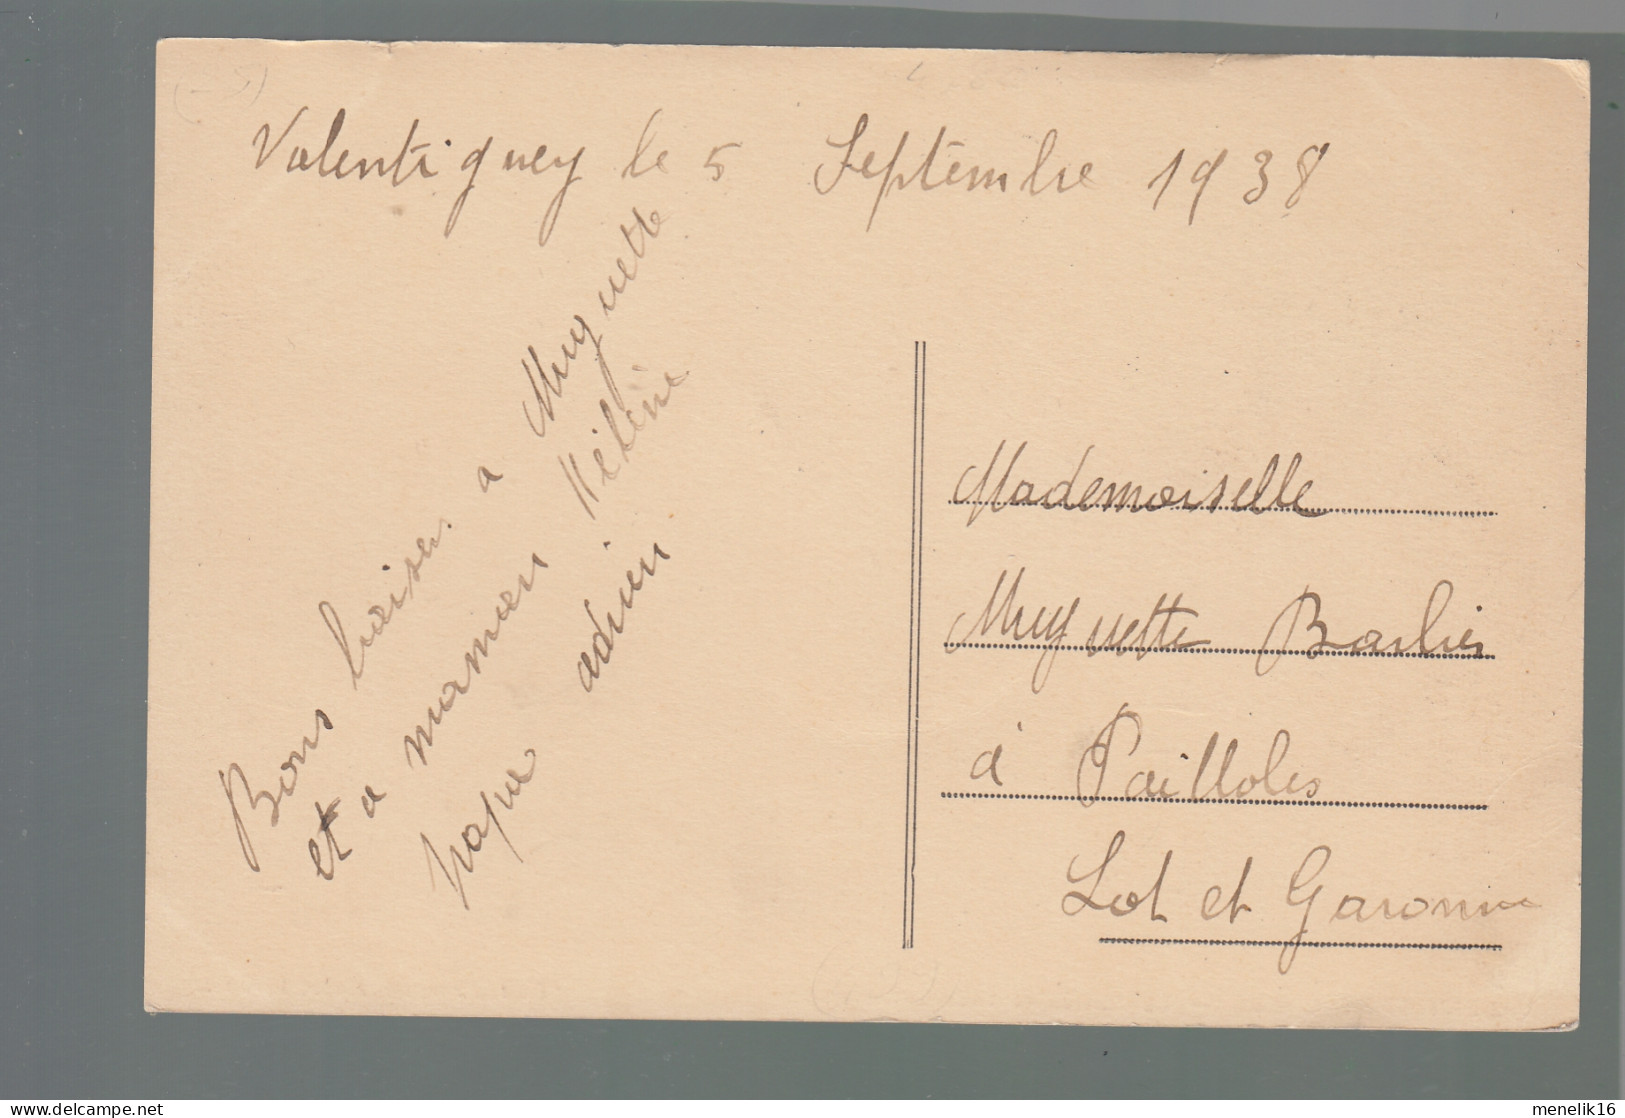 Valentigney le 5 Septembre 1938
Bons baisers a Muguette
et a maman Hélène
papa adrien
Mademoiselle
Muguette Barbier
à Pailloles
Lot et Garonne
menelik16